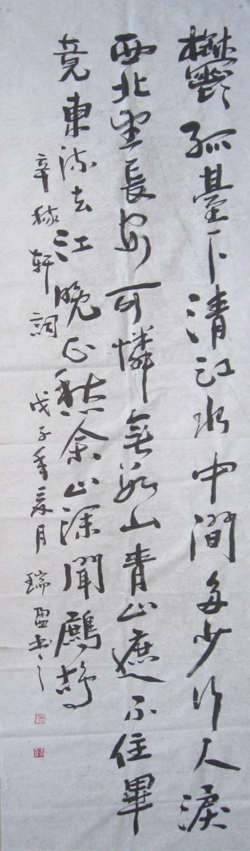 鬱孤臺下清江水中間多少行人淚
西北望長安可憐無數山青山遮不住畢
竟東流去江晚正愁余山深聞鷓鴣
辛稼軒詞 戊子年月 瑞盈书之